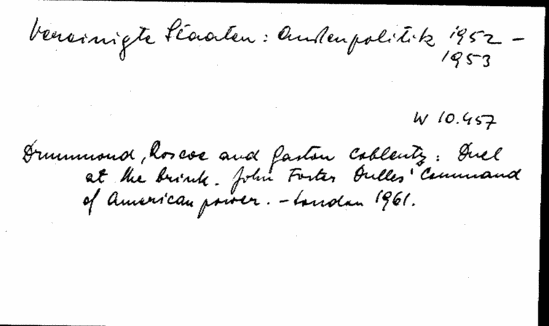 Vereinigte Staaten: Außenpolitik 1952 -
1953
W 10.457
Drummond, Roscoe and Gaston Coblentz: Duel
at the brink. John Foster Dulles' Command
of American power. - London 1961.